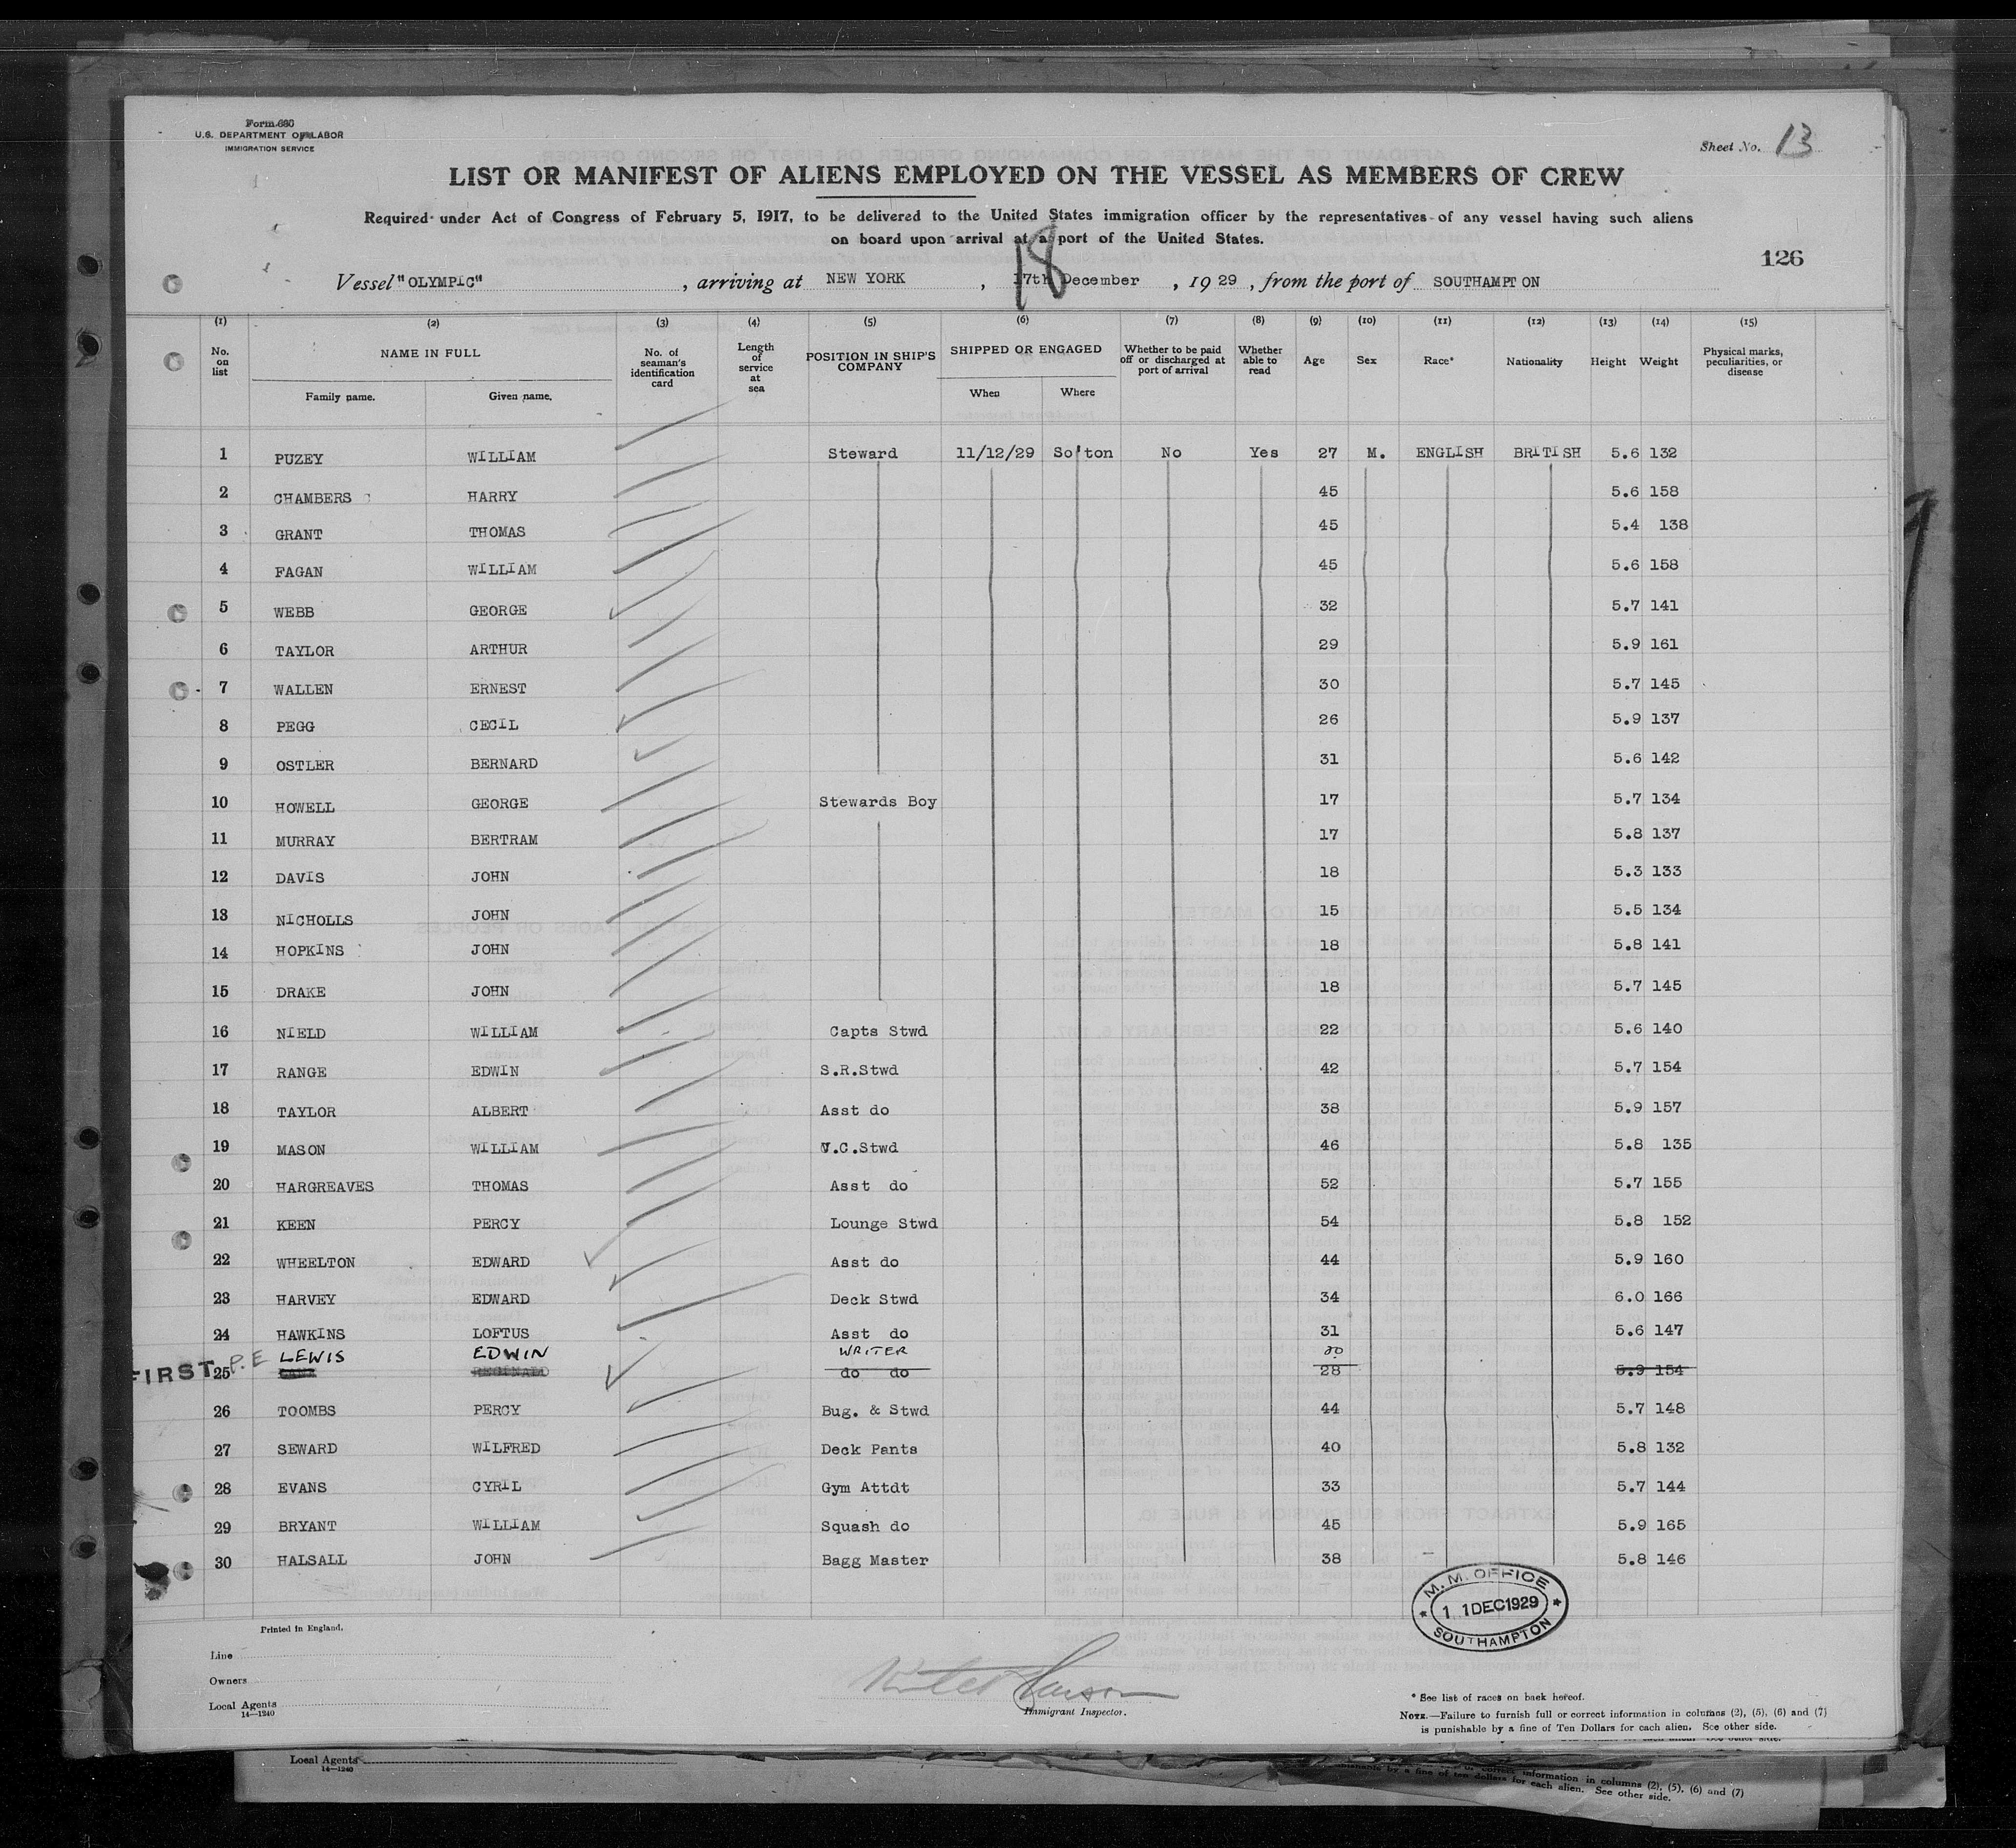 Form 680
U.S. DEPARTMENT OF LABOR
IMMIGRATION SERVICE
Sheet No. 13
LIST OR MANIFEST OF ALIENS EMPLOYED ON THE VESSEL AS MEMBERS OF CREW
Required under Act of Congress of February 5, 1917, to be delivered to the United States immigration officer by the representatives of any vessel having such aliens
on board upon arrival at a port of the United States.
126
18
Vessel "OLYMPIC", arriving at NEW YORK, 17th December, 1929, from the port of SOUTHAMPTON
(1) (2) (3) (4) (5) (6) (7) (8) (9) (10) (11) (12) (13) (14) (15)
No. on list NAME IN FULL No. of seaman's identification card Length of service at sea POSITION IN SHIP'S COMPANY SHIPPED OR ENGAGED Whether to be paid off or discharged at port of arrival Whether able to read Age Sex Race* Nationality Height Weight Physical marks, peculiarities, or disease
Family name. Given name. When Where
1 PUZEY WILLIAM Steward 11/12/29 So'ton No Yes 27 M. ENGLISH BRITISH 5.6 132
2 CHAMBERS HARRY 45 5.6 158
3 GRANT THOMAS 45 5.4 138
4 FAGAN WILLIAM 45 5.6 158
5 WEBB GEORGE 32 5.7 141
6 TAYLOR ARTHUR 29 5.9 161
7 WALLEN ERNEST 30 5.7 145
8 PEGG CECIL 26 5.9 137
9 OSTLER BERNARD 31 5.6 142
10 HOWELL GEORGE Stewards Boy 17 5.7 134
11 MURRAY BERTRAM 17 5.8 137
12 DAVIS JOHN 18 5.3 133
13 NICHOLLS JOHN 15 5.5 134
14 HOPKINS JOHN 18 5.8 141
15 DRAKE JOHN 18 5.7 145
16 NIELD WILLIAM Capts Stwd 22 5.6 140
17 RANGE EDWIN S.R.Stwd 42 5.7 154
18 TAYLOR ALBERT Asst do 38 5.9 157
19 MASON WILLIAM V.C.Stwd 46 5.8 135
20 HARGREAVES THOMAS Asst do 52 5.7 155
21 KEEN PERCY Lounge Stwd 54 5.8 152
22 WHEELTON EDWARD Asst do 44 5.9 160
23 HARVEY EDWARD Deck Stwd 34 6.0 166
24 HAWKINS LOFTUS Asst do 31 5.6 147
P.E LEWIS EDWIN WRITER
FIRST 25 REGINALD do do 28 5.9 154
26 TOOMBS PERCY Bug. & Stwd 44 5.7 148
27 SEWARD WILFRED Deck Pants 40 5.8 132
28 EVANS CYRIL Gym Attdt 33 5.7 144
29 BRYANT WILLIAM Squash do 45 5.9 165
30 HALSALL JOHN Bagg Master 38 5.8 146
M.M. OFFICE
11 DEC 1929
SOUTHAMPTON
Printed in England.
Line
Owners
Local Agents
14—1240
Immigrant Inspector.
* See list of races on back hereof.
NOTE.—Failure to furnish full or correct information in columns (2), (5), (6) and (7)
is punishable by a fine of Ten Dollars for each alien. See other side.
Local Agents
14—1240
information in columns (2), (5), (6) and (7)
by a fine of ten dollars for each alien. See other side.